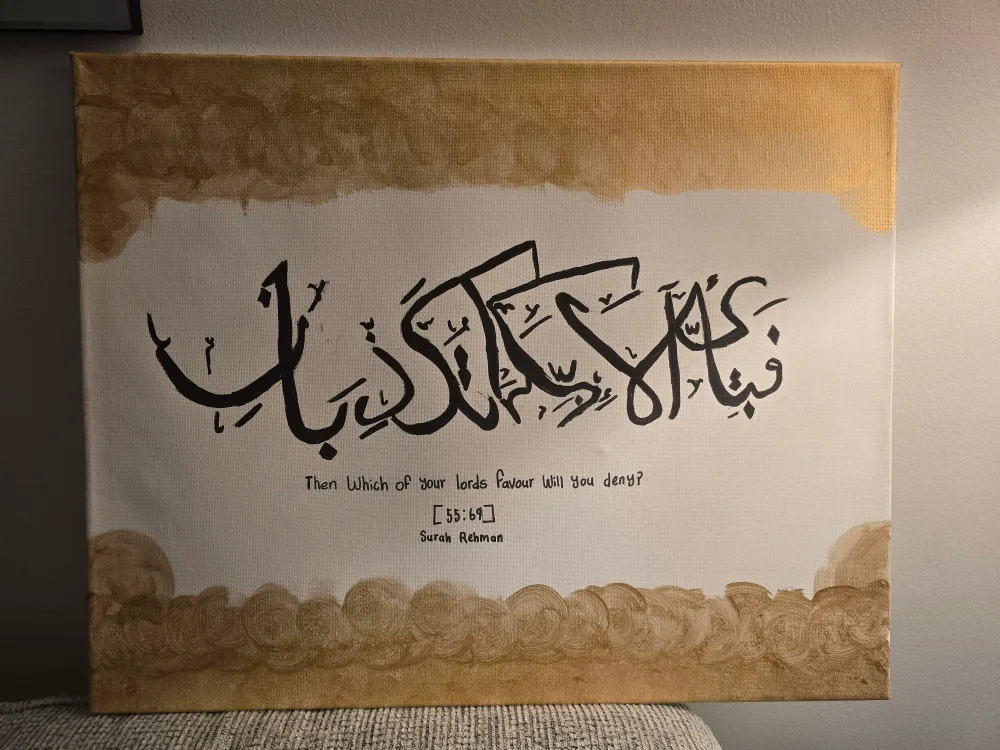 فبأي آلاء ربكما تكذبان
Then Which of your lords favour Will you deny?
[55:69]
Surah Rehman